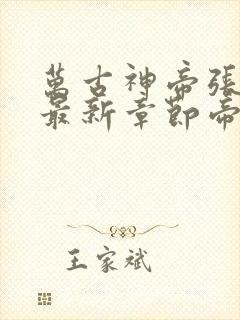 萬古神帝張
最新章節帝
王家斌